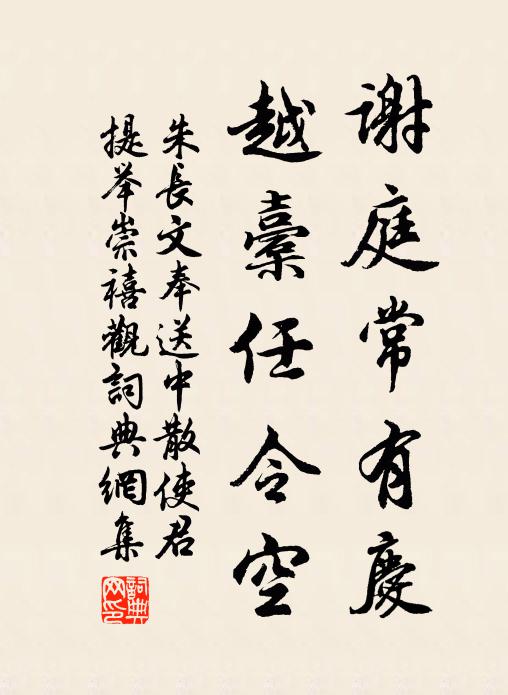 謝庭常有慶
越橐任令空
朱長文奉送中散使君
提举崇禧觀詞典網集
詞典網印